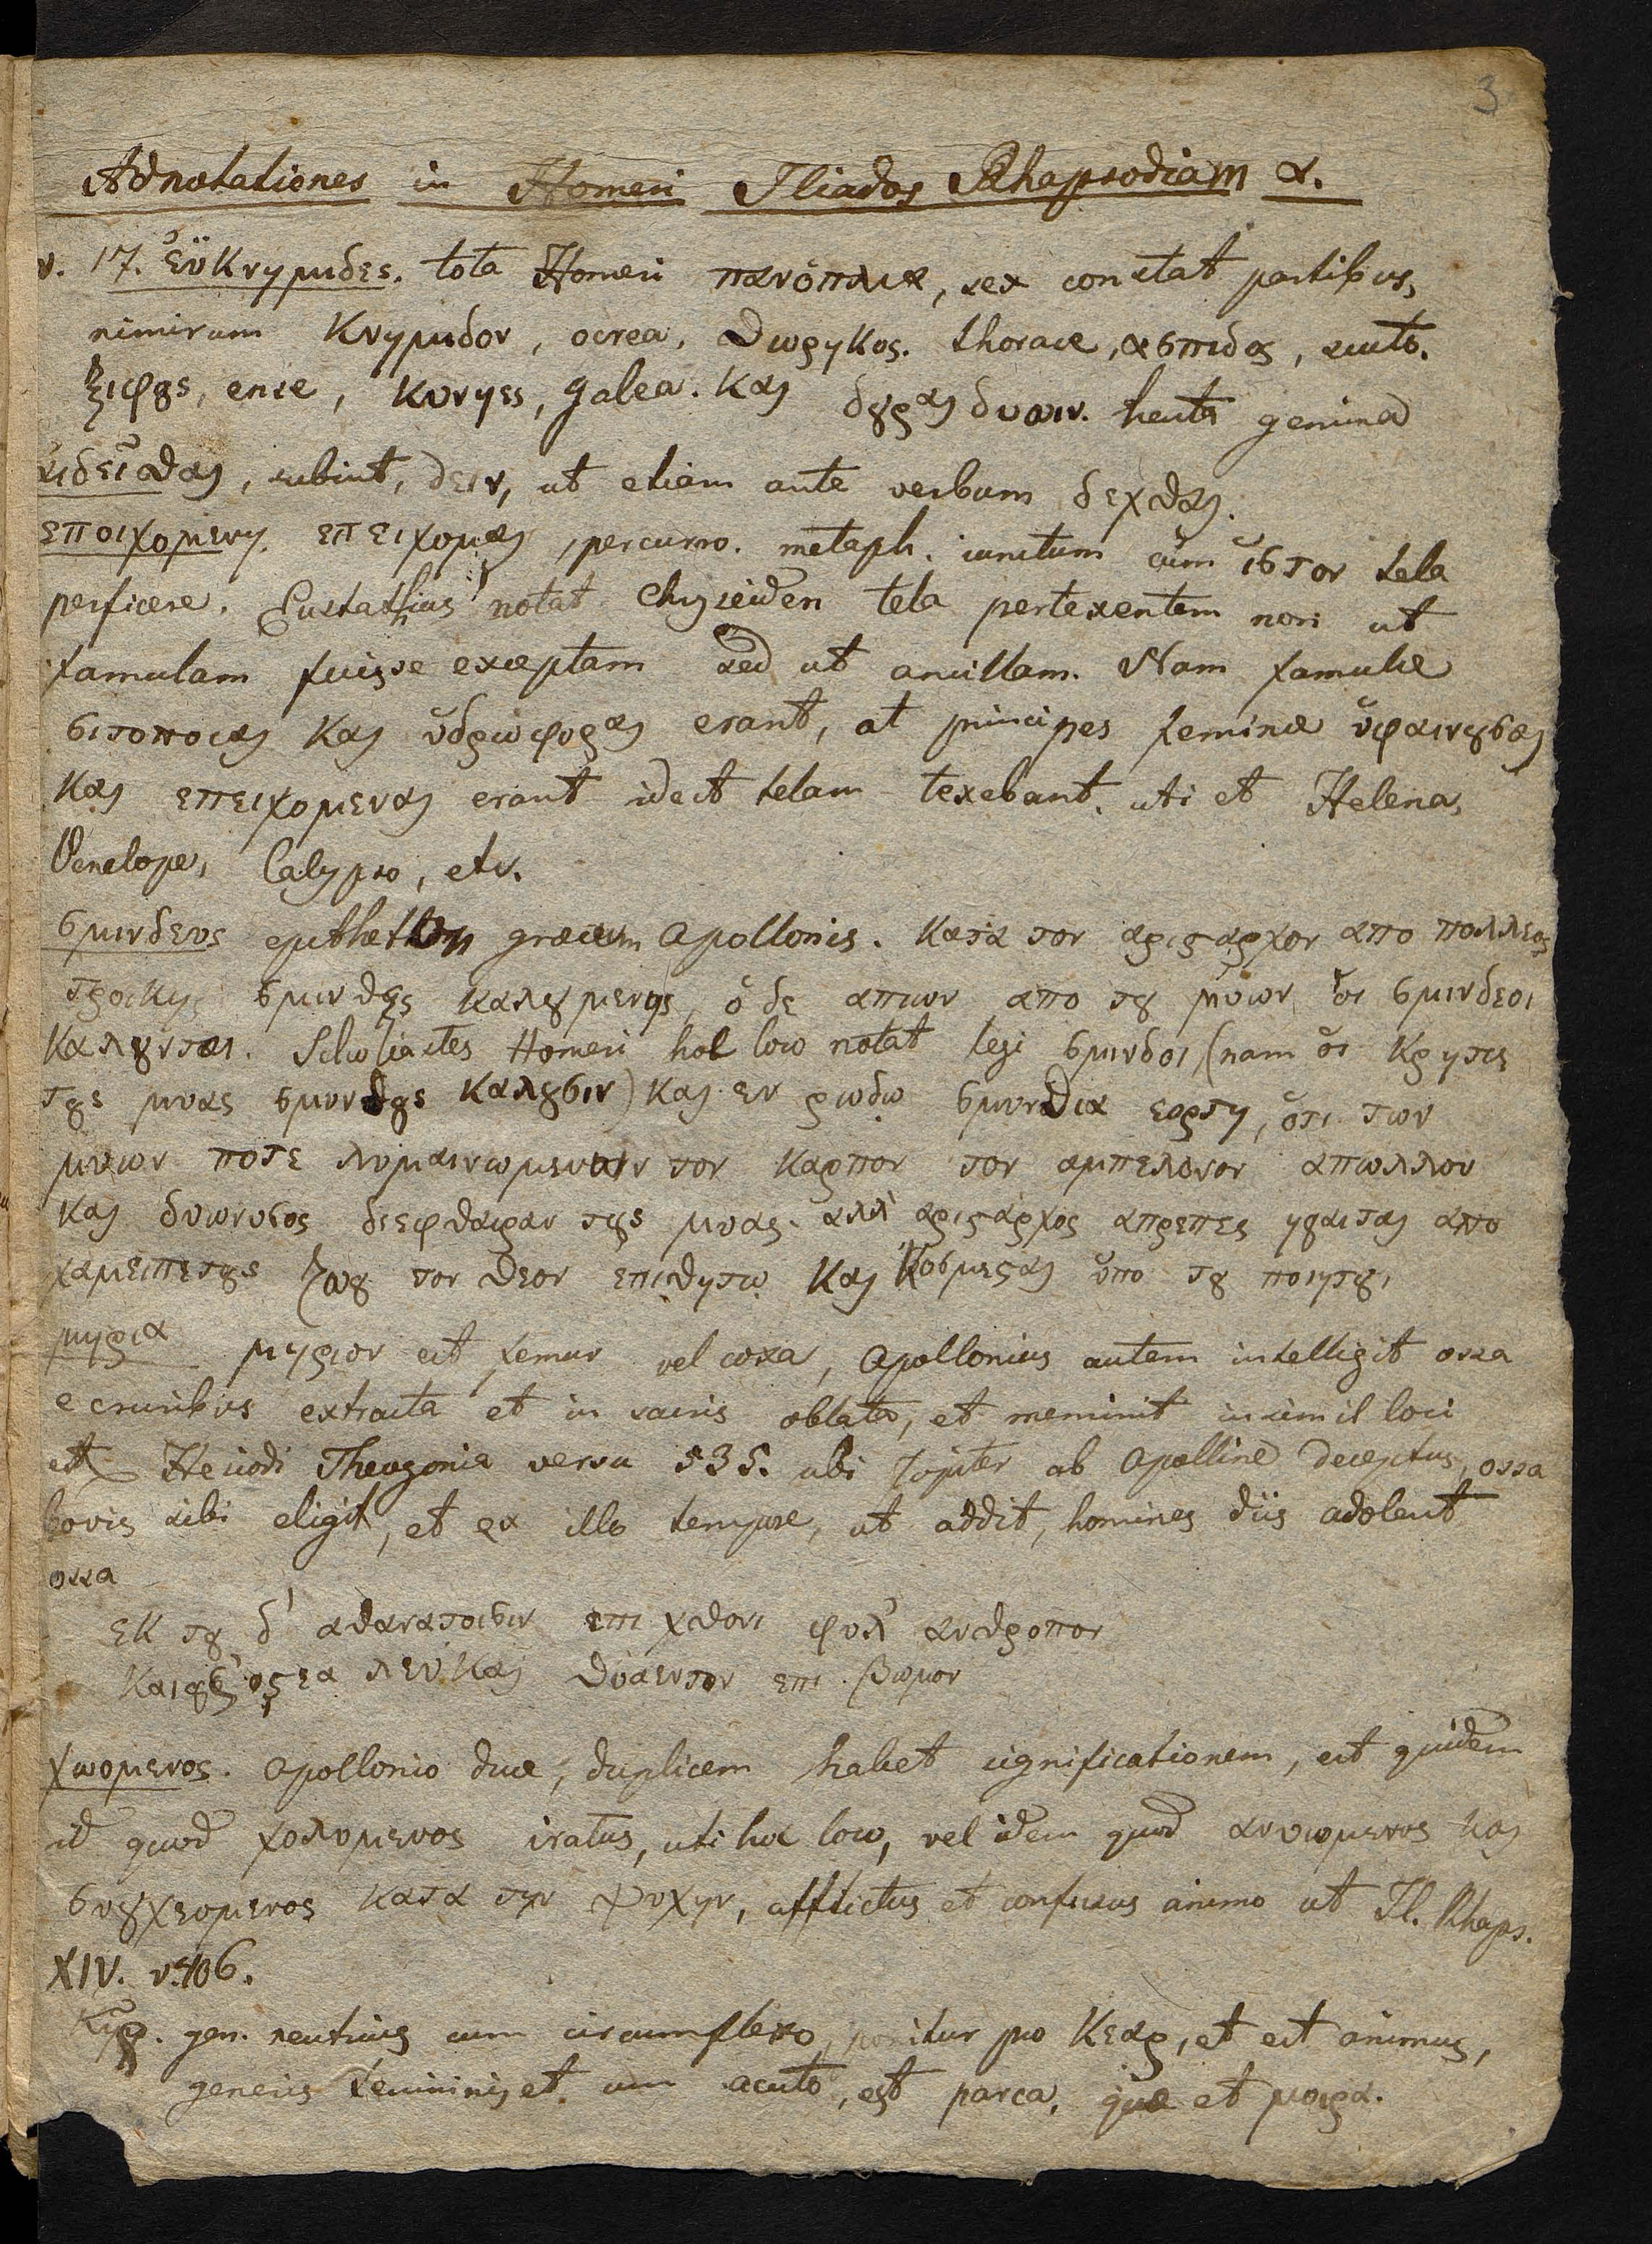 3
Adnotationes in Homeri Iliados Rhapsodiam α.
v. 17. ἐϋκνημιδες. tota Homeri πανόπλια, sex constat partibus,
nimirum κνημιδον, ocrea, θωρηκος. thorace, ασπιδος, scuto.
ξιφȣς, ense, κυνηες, galea. και δȣραι δυοιν. hasta gemina
αιδεῖσθαι, subint, δειν, ut etiam ante verbum δεχθαι.
εποιχομενη. επειχομαι, percurro. metaph. iunctum cum ἱστον tela
perficere. Eustathius notat Chryseiden tela pertexentem non ut
famulam fuisse exceptam sed ut ancillam. Nam famulae
σιτοποιαι και ὑδρωφοραι erant, at principes feminae ὑφαινȣσαι
και επειχομεναι erant id est telam texebant. uti et Helena,
Penelope, Calypso, etc.
σμινθευς epitheton graecum Apollonis. κατα τον αρισταρχον απο πολλεος
τροικης σμινθης καλȣμενης, ὁ δε απιων απο τȣ μυων ὁι σμινθεοι
καλȣνται. Scholiastes Homeri hoc loco notat legi σμινθοι (nam ὁι κρητες
τȣς μυας σμυνθȣς καλȣσιν) και εν ρωδω σμυνθια εορτη, ὁτι των
μυων ποτε λυμαινωμενων τον καρπον τον αμπελονον απωλλον
και διωνυσος διεφθαιραν τȣς μυας. αλλ' αρισταρχος απρεπες ηγαιται απο
χαμειπετȣς ζωȣ τον θεον επιθητω και κοσμεισαι ὑπο τȣ ποιητȣ.
μηρια μηριον est femur vel coxa, Apollonius autem intelligit ossa
e cruribus extracta et in sacris oblata, et meminit in simil loci
ex Hesiodi Theogonia versu 535. ubi Jupiter ab Apolline deceptus, ossa
bovis sibi eligit, et ex illo tempore, ut addit, homines diis adolent
ossa
εκ τȣ δ' αθανατοισιν επι χθονι φυλ' ανθροπον
οςεα λευκαι θυαεντον επι βωμον
χωομενος. Apollonio duce, duplicem habet significationem, est quidem
id quod χολυμενος iratus, uti hoc loco, vel idem quod ανιωμενος και
συγχεομενος κατα την ψυχην, afflictus et confusus animo ut Il. Rhaps.
XIV. v. 406.
κηρ. gen. neutrius cum circumflexo, ponitur pro κεαρ, et est animus,
generis feminini, et cum acuto, est parca, quae et μοιρα.